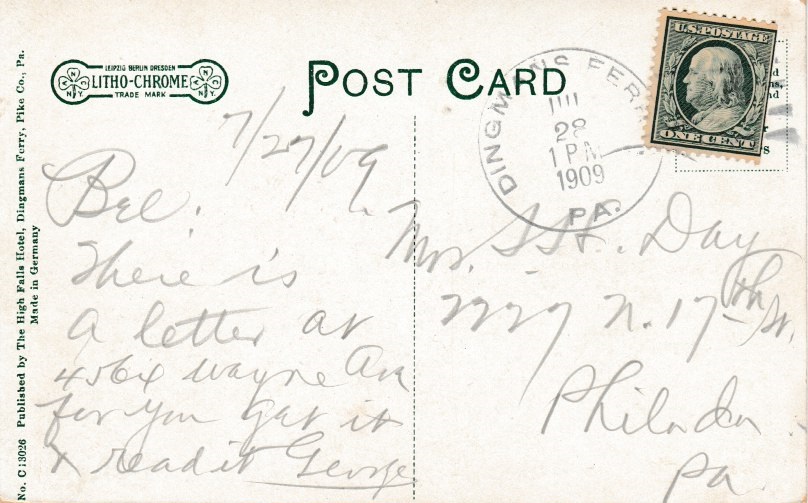 LEIPZIG BERLIN DRESDEN
LITHO-CHROME
TRADE MARK
N.Y.
N.Y.
POST CARD
DINGMANS FERRY
28
1 PM
1909
PA.
U.S. POSTAGE
ONE CENT
7/27/09
Bee.
There is
a letter at
4564 Wayne Ave
for you get it
& read it George
Mrs. S. H. Day
2227 N. 17th St.
Philada.
Pa.
No. C13026 Published by The High Falls Hotel, Dingmans Ferry, Pike Co., Pa.
Made in Germany